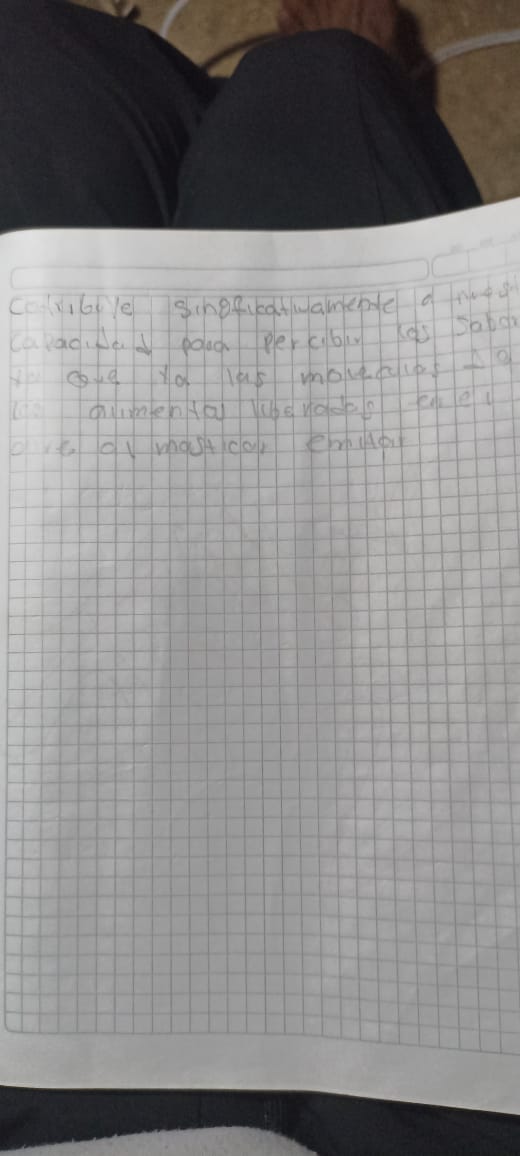 contribuye singfikativamente a nuest
capacidad para percibir las sabor
ya que ya las moleculas d
los alimentos liberados en el
aire al masticar emitar